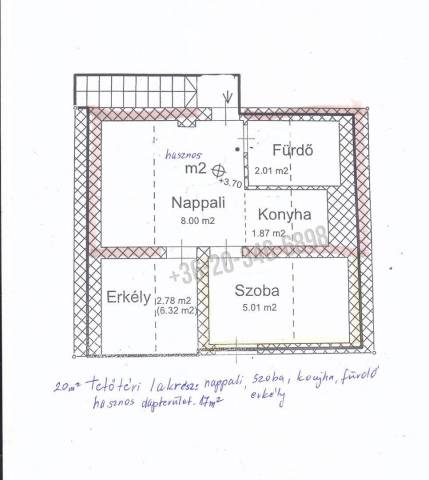 hasznos
Fürdő
2.01 m2
m2
+3.70
Nappali
8.00 m2
Konyha
1.87 m2
+36-20-346-6898
Erkély
2.78 m2
(6.32 m2)
Szoba
5.01 m2
20m² tetőtéri lakrész nappali, szoba, konyha, fürdő
hasznos alapterület. 17m² erkély